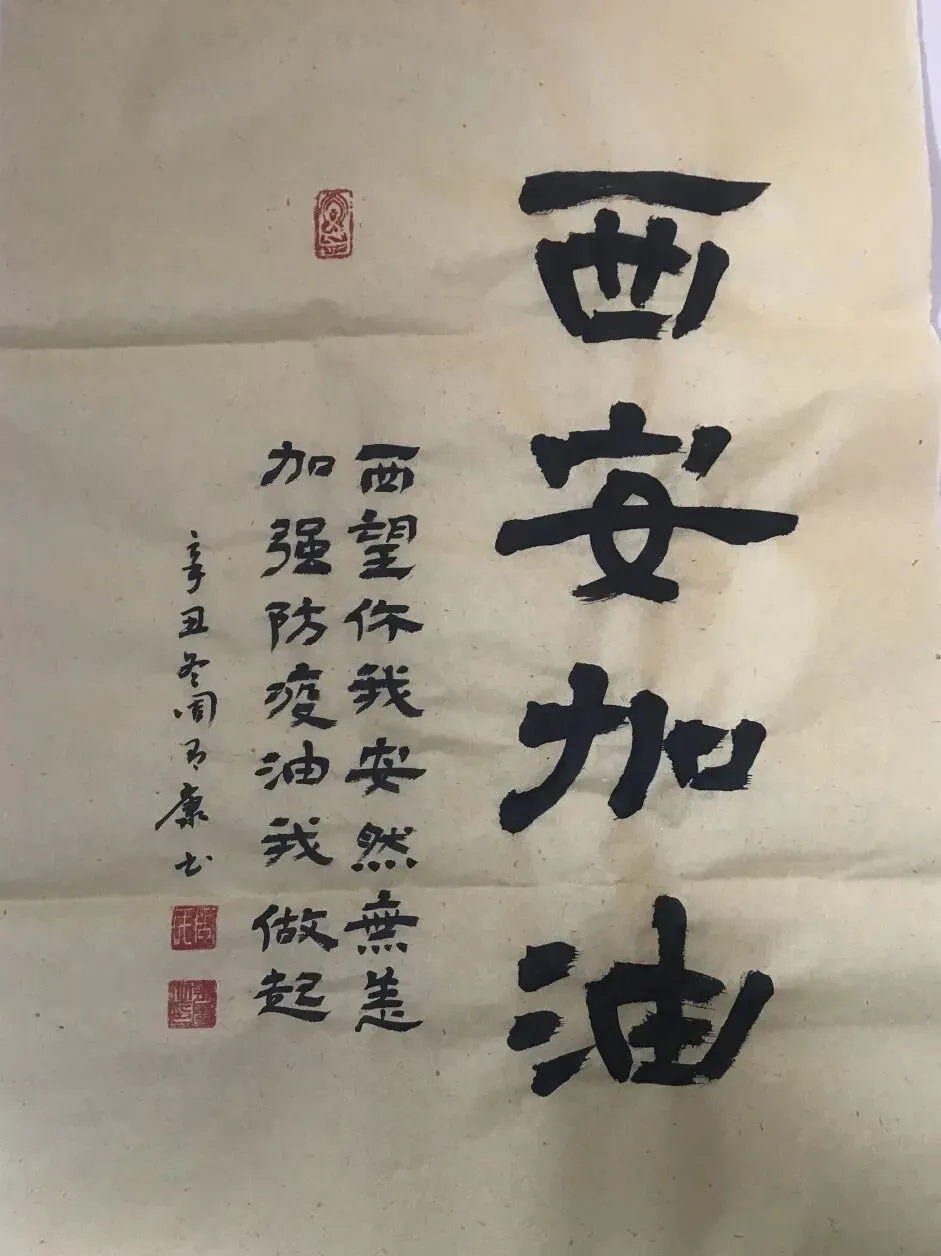 西安加油
西望你我安然無恙
加强防疫油我做起
辛丑冬周有康书